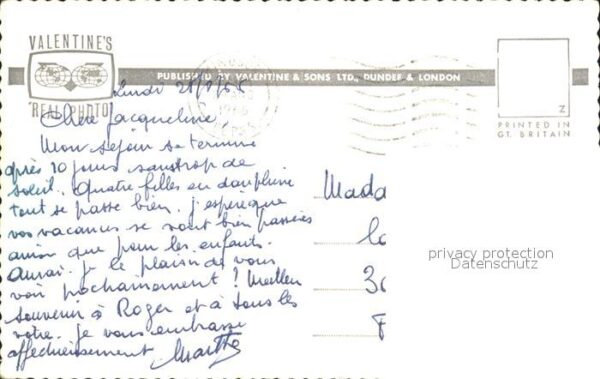 VALENTINE'S
"REAL PHOTO"
PUBLISHED BY VALENTINE & SONS LTD., DUNDEE & LONDON
Z
PRINTED IN
GT. BRITAIN
Lundi
Chère Jacqueline,
Mon séjour se termine
après 10 jours sans trop de
soleil. Quatre filles en dauphine
tout se passe bien. j'espère que
vos vacances se sont bien passées
ainsi que pour les enfants.
Aurai-je le plaisir de vous
voir prochainement ? Meilleur
souvenir à Roger et à tous les
votre. je vous embrasse
affectueusement Marthe
Mada
privacy protection
Datenschutz